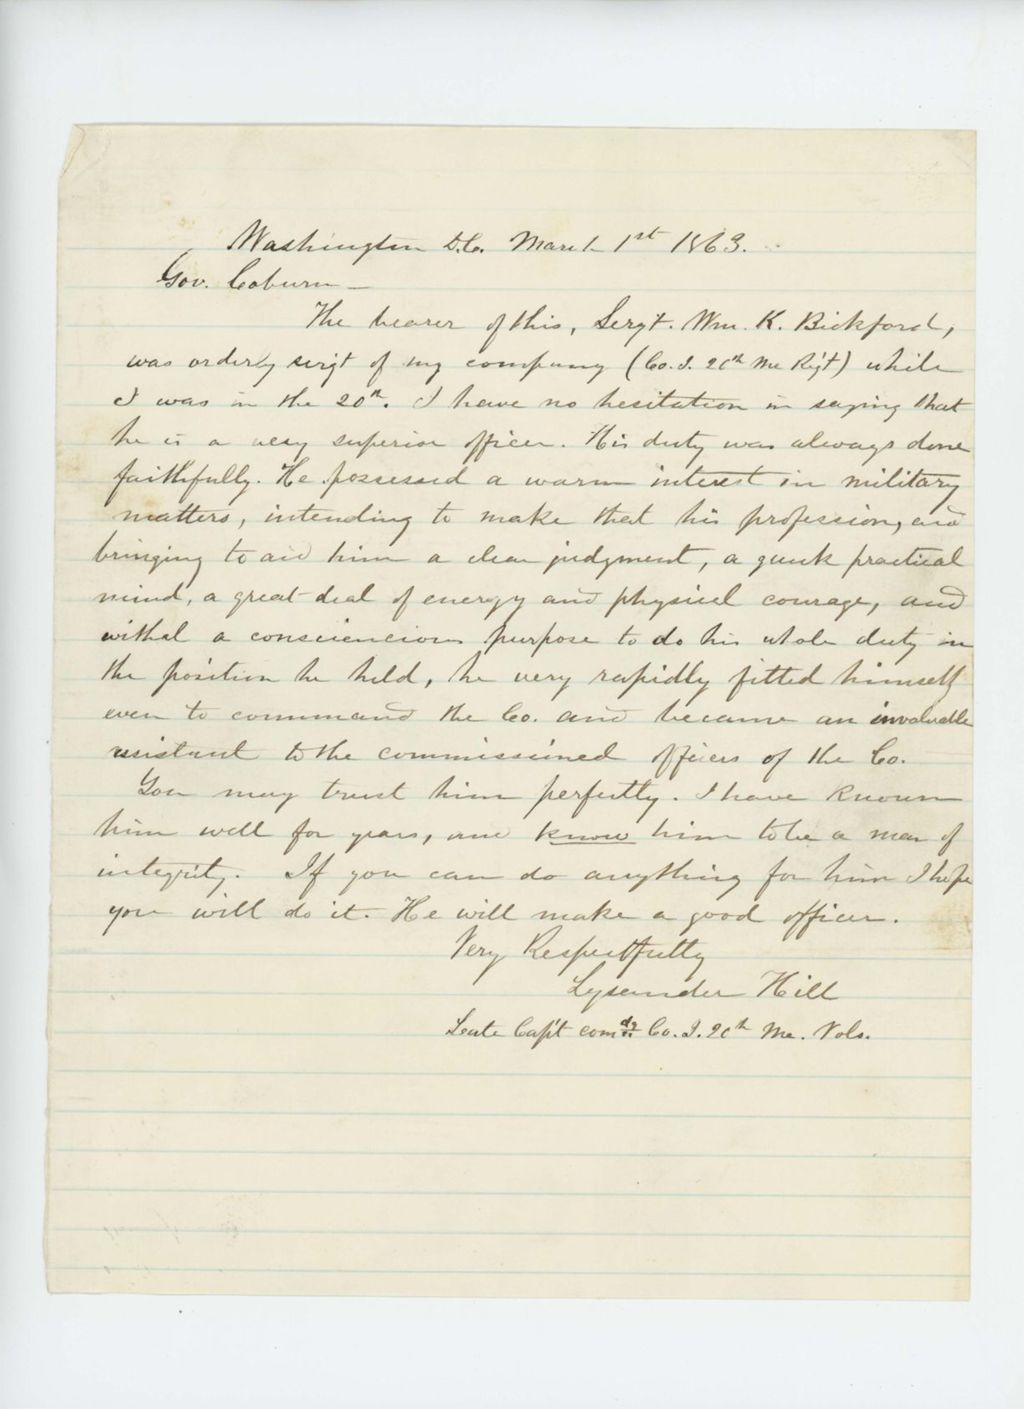 Washington D.C. March 1st 1863.
Gov. Coburn —
The bearer of this, Sergt. Wm. K. Bickford,
was orderly sergt of my company (Co. I. 20th Me Regt) while
I was in the 20th. I have no hesitation in saying that
he is a very superior officer. His duty was always done
faithfully. He possessed a warm interest in military
matters, intending to make that his profession, and
bringing to aid him a clear judgment, a quick practical
mind, a great deal of energy and physical courage, and
withal a consciencious purpose to do his whole duty in
the position he held, he very rapidly fitted himself
even to command the Co. and became an invaluable
assistant to the commissioned officers of the Co.
You may trust him perfectly. I have known
him well for years, and know him to be a man of
integrity. If you can do anything for him I hope
you will do it. He will make a good officer.
Very Respectfully
Lysander Hill
Late Capt comdg Co. I. 20th Me. Vols.